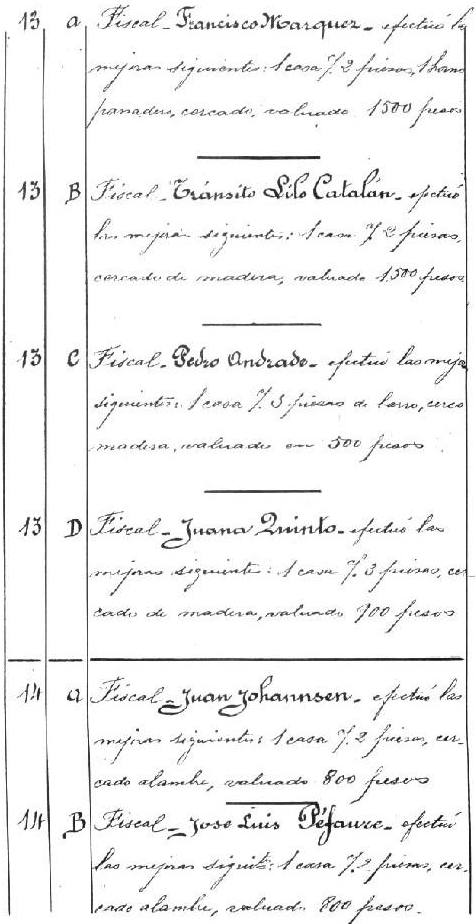 13 a Fiscal - Francisco Marquez - efectuó las
mejoras siguientes: 1 casa 7. 2 piezas, 1 horno
panadero, cercado, valuado 1500 pesos
13 B Fiscal - Tránsito Lilo Catalán - efectuó
las mejoras siguientes: 1 casa 7. 2 piezas,
cercado de madera, valuado 1,500 pesos
13 C Fiscal - Pedro Andrade - efectuó las mejo
siguientes: 1 casa 7. 3 piezas de barro, cerco
madera, valuado en 500 pesos
13 D Fiscal - Juana Quinto - efectuó las
mejoras siguiente: 1 casa 7. 3 piezas, cer-
cado de madera, valuado 700 pesos
14 a Fiscal - Juan Johannsen - efectuó las
mejoras siguientes: 1 casa 7. 2 piezas, cer-
cado alambre, valuado 800 pesos
14 B Fiscal - Jose Luis Péfaure - efectuó
las mejoras siguite: 1 casa 7. 2 piezas, cer-
cado alambre, valuado 800 pesos.